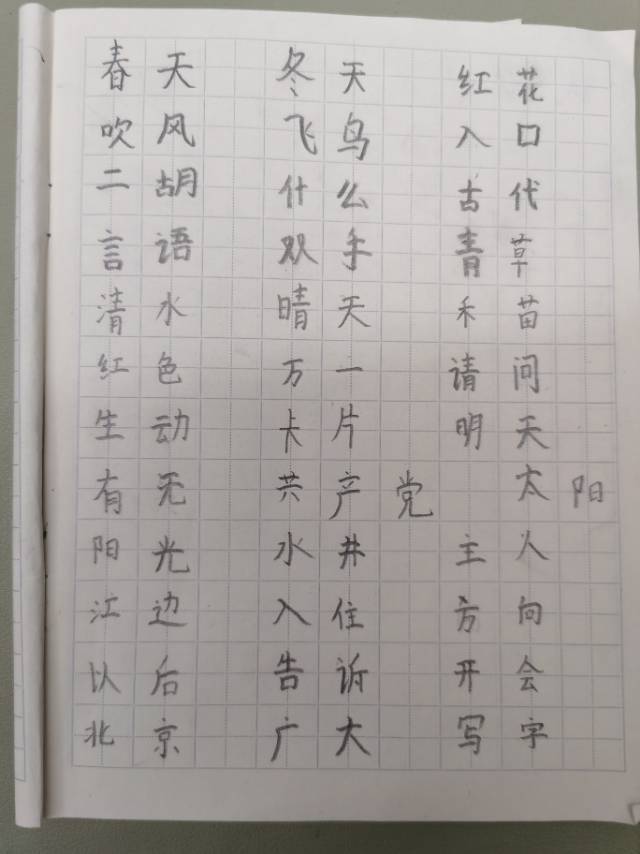 春天 冬天 红花
吹风 飞鸟 入口
二胡 什么 古代
言语 双手 青草
清水 晴天 禾苗
红色 万一 请问
生动 卡片 明天
有无 共产党 太阳
阳光 水井 主人
江边 入住 方向
以后 告诉 开会
北京 广大 写字